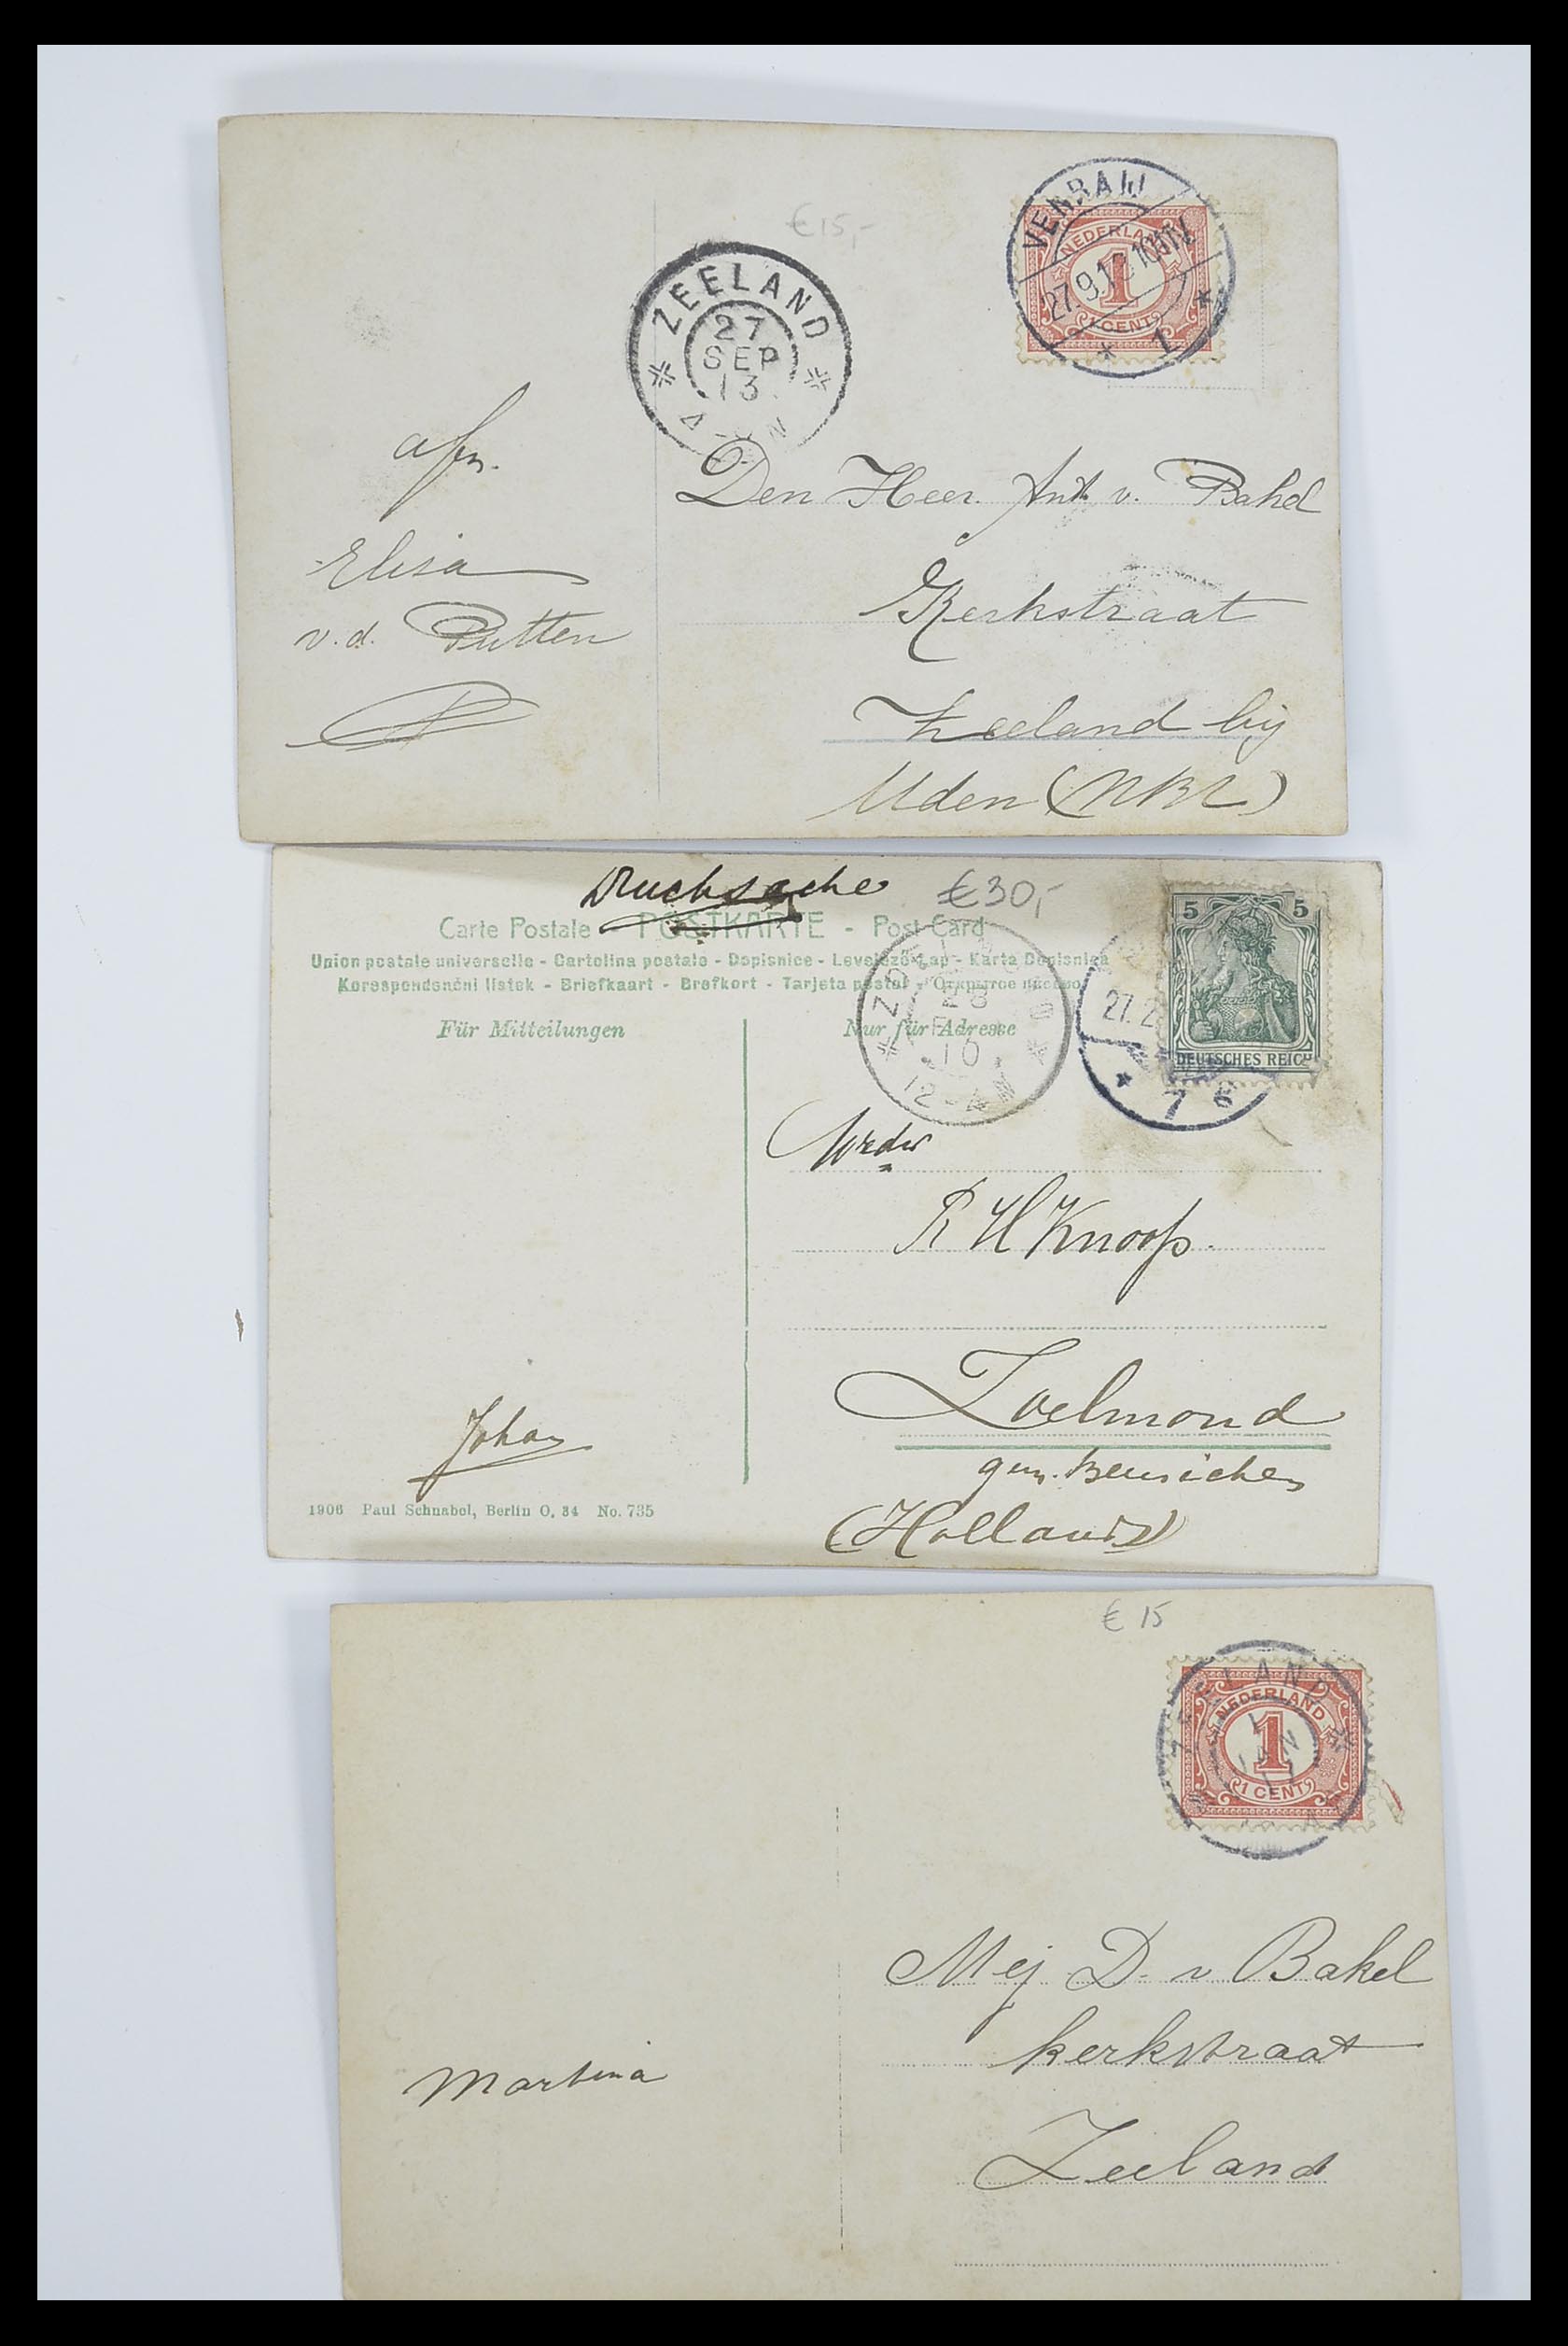 €15,-
VENRAIJ
NEDERLAND
1
1 CENT
27.9.13 10-11V
* 1 *
ZEELAND
27
SEP
13
afz.
Elisa
v.d. Putten
Den Heer Ant. v. Bakel
Kerkstraat
Zeeland bij
Uden (NBr)
Drucksache
€30,-
Carte Postale - POSTKARTE - Post Card
Union postale universelle - Cartolina postale - Dopisnice - Levelező-Lap - Karta Dopisnica
Korespondenční lístek - Briefkaart - Brefkort - Tarjeta postal - Открытое письмо
Für Mitteilungen
Nur für Adresse
5 5
DEUTSCHES REICH
27.2
* 7 8
28
10
12-4N
R H Knoops.
Zoelmond
gem. Beusichem
(Holland)
Johan
1906 Paul Schnabel, Berlin O. 34 No. 735
€ 15
ZEELAND
NEDERLAND
1
1 CENT
JAN
Mej D. v Bakel
kerkstraat
Zeeland
Martina